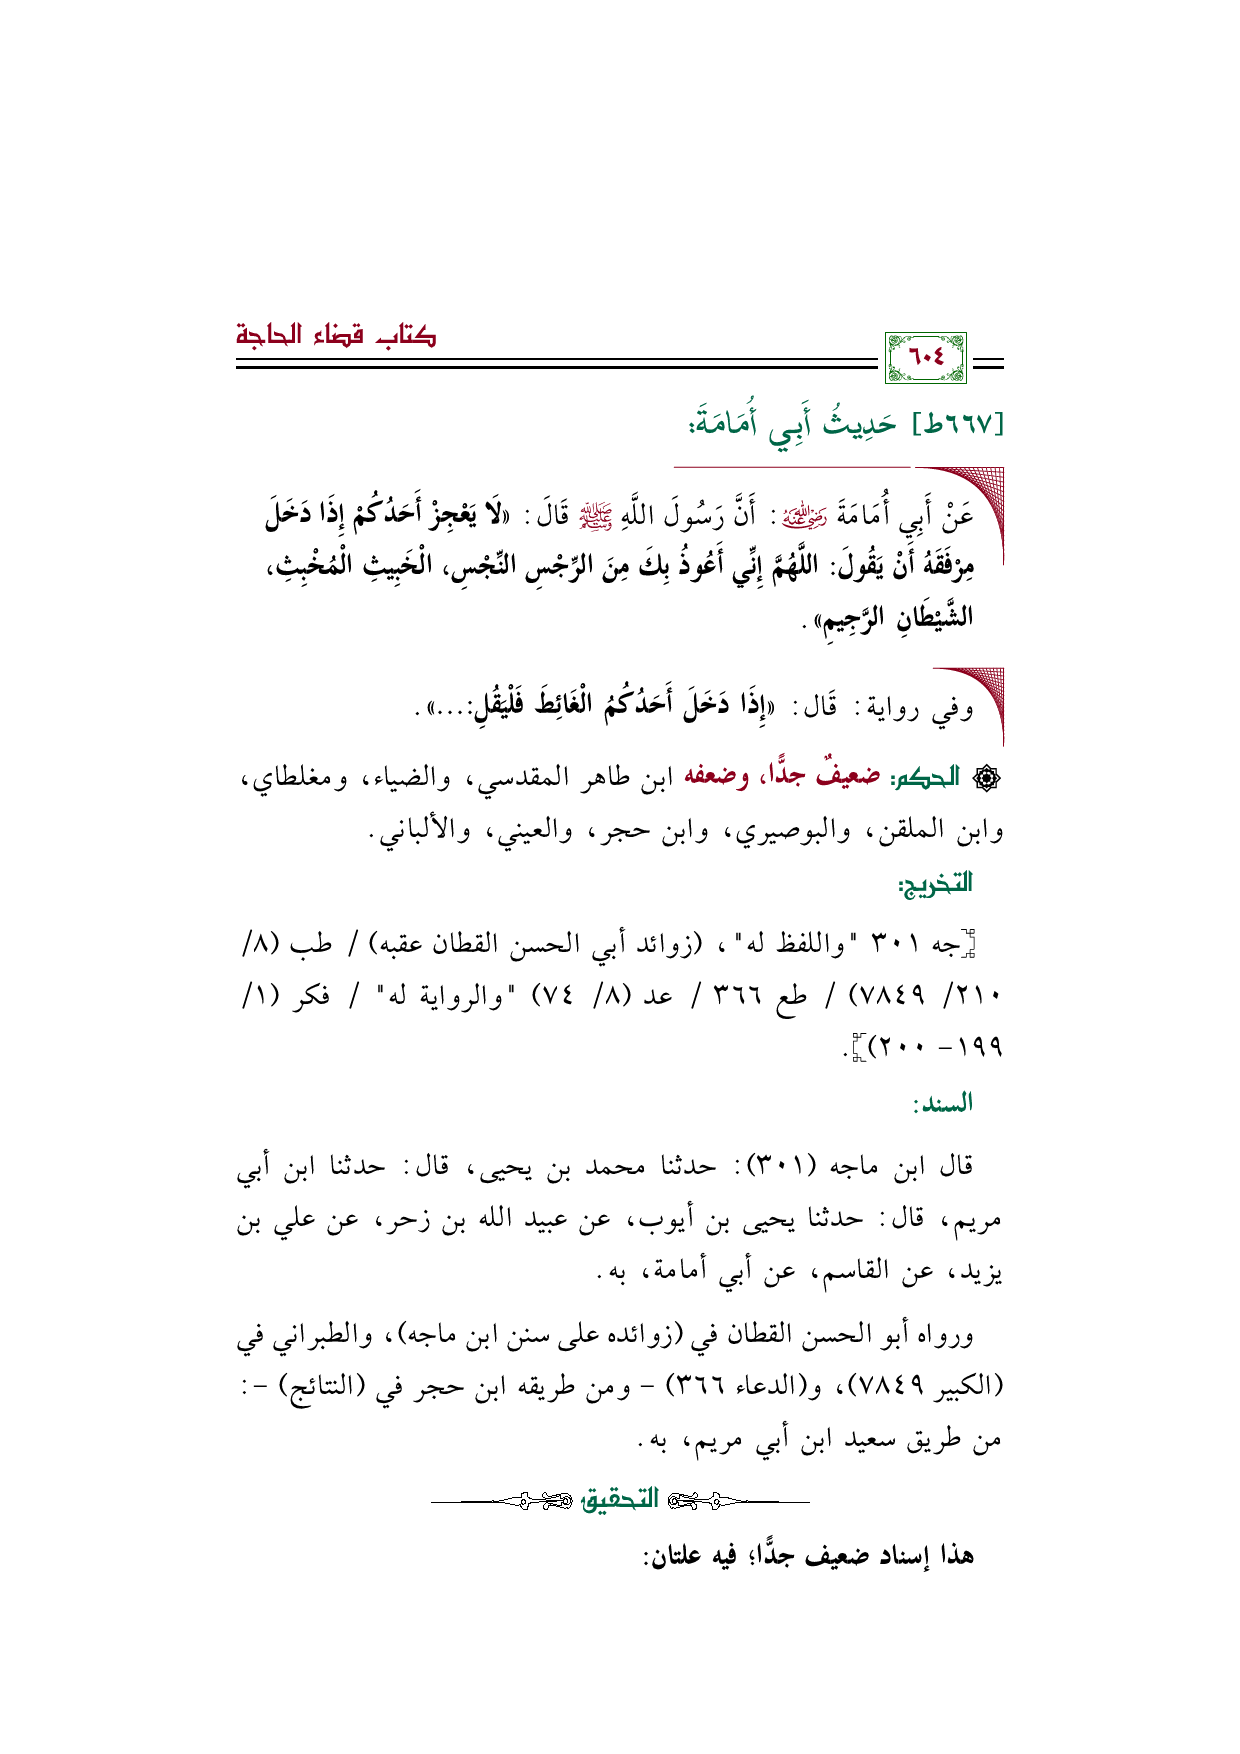 كتاب قضاء الحاجة
٦٠٤
[٦٦٧ط] حَدِيثُ أَبِي أُمَامَةَ:
عَنْ أَبِي أُمَامَةَ رضي الله عنه: أَنَّ رَسُولَ اللَّهِ ﷺ قَالَ: «لَا يَعْجِزْ أَحَدُكُمْ إِذَا دَخَلَ
مِرْفَقَهُ أَنْ يَقُولَ: اللَّهُمَّ إِنِّي أَعُوذُ بِكَ مِنَ الرِّجْسِ النِّجْسِ، الْخَبِيثِ الْمُخْبِثِ،
الشَّيْطَانِ الرَّجِيمِ».
وفي رواية: قَال: «إِذَا دَخَلَ أَحَدُكُمُ الْغَائِطَ فَلْيَقُلِ:...».
الحكم: ضعيفٌ جدًّا، وضعفه ابن طاهر المقدسي، والضياء، ومغلطاي،
وابن الملقن، والبوصيري، وابن حجر، والعيني، والألباني.
التخريج:
[جه ٣٠١ "واللفظ له"، (زوائد أبي الحسن القطان عقبه) / طب (٨/
٢١٠/ ٧٨٤٩) / طع ٣٦٦ / عد (٨/ ٧٤) "والرواية له" / فكر (١/
١٩٩- ٢٠٠)].
السند:
قال ابن ماجه (٣٠١): حدثنا محمد بن يحيى، قال: حدثنا ابن أبي
مريم، قال: حدثنا يحيى بن أيوب، عن عبيد الله بن زحر، عن علي بن
يزيد، عن القاسم، عن أبي أمامة، به.
ورواه أبو الحسن القطان في (زوائده على سنن ابن ماجه)، والطبراني في
(الكبير ٧٨٤٩)، و(الدعاء ٣٦٦) - ومن طريقه ابن حجر في (النتائج) -:
من طريق سعيد ابن أبي مريم، به.
التحقيق
هذا إسناد ضعيف جدًّا؛ فيه علتان: